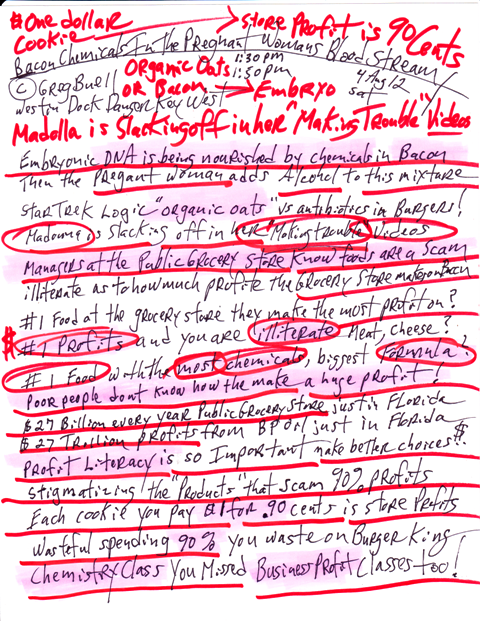 #One dollar
Cookie → Store Profit is 90 Cents
Bacon Chemicals In the Pregnant Womans Blood Stream
Organic Oats 1:30 pm
© Greg Buell or Bacon → Embryo 4 Aug 12
Westin Dock Danger Key West Sat
Madolla is Slacking off in her "Making Trouble" Videos
Embryonic DNA is being nourished by chemicals in Bacon
Then the PREgant woman adds Alcohol to this mixture
StarTrek Logic "organic oats" vs antibiotics in Burgers!
Madonna is Slacking off in her "Making trouble" Videos
Managers at the Public Grocery Store Know foods are a Scam
illiterate as to how much profite the Grocery Store makes on Bacon
#1 Food at the grocery store they make the most profit on?
$ #1 Profits and you are illiterate Meat, Cheese?
#1 Food with the most chemicals, biggest Formula?
Poor people dont Know how the make a huge profit!
$27 Billion every year Public Grocery Store just in Florida
$27 Trillion profits from BP Oil just in Florida
Profit Literacy is so Important make better choices!! $
Stigmatizing the "Products" that scam 90% profits
Each cookie you pay $1 for .90 cents is store Profits
Wasteful spending 90% you waste on Burger King
Chemistry Class You Missed Business Profit Classes too!